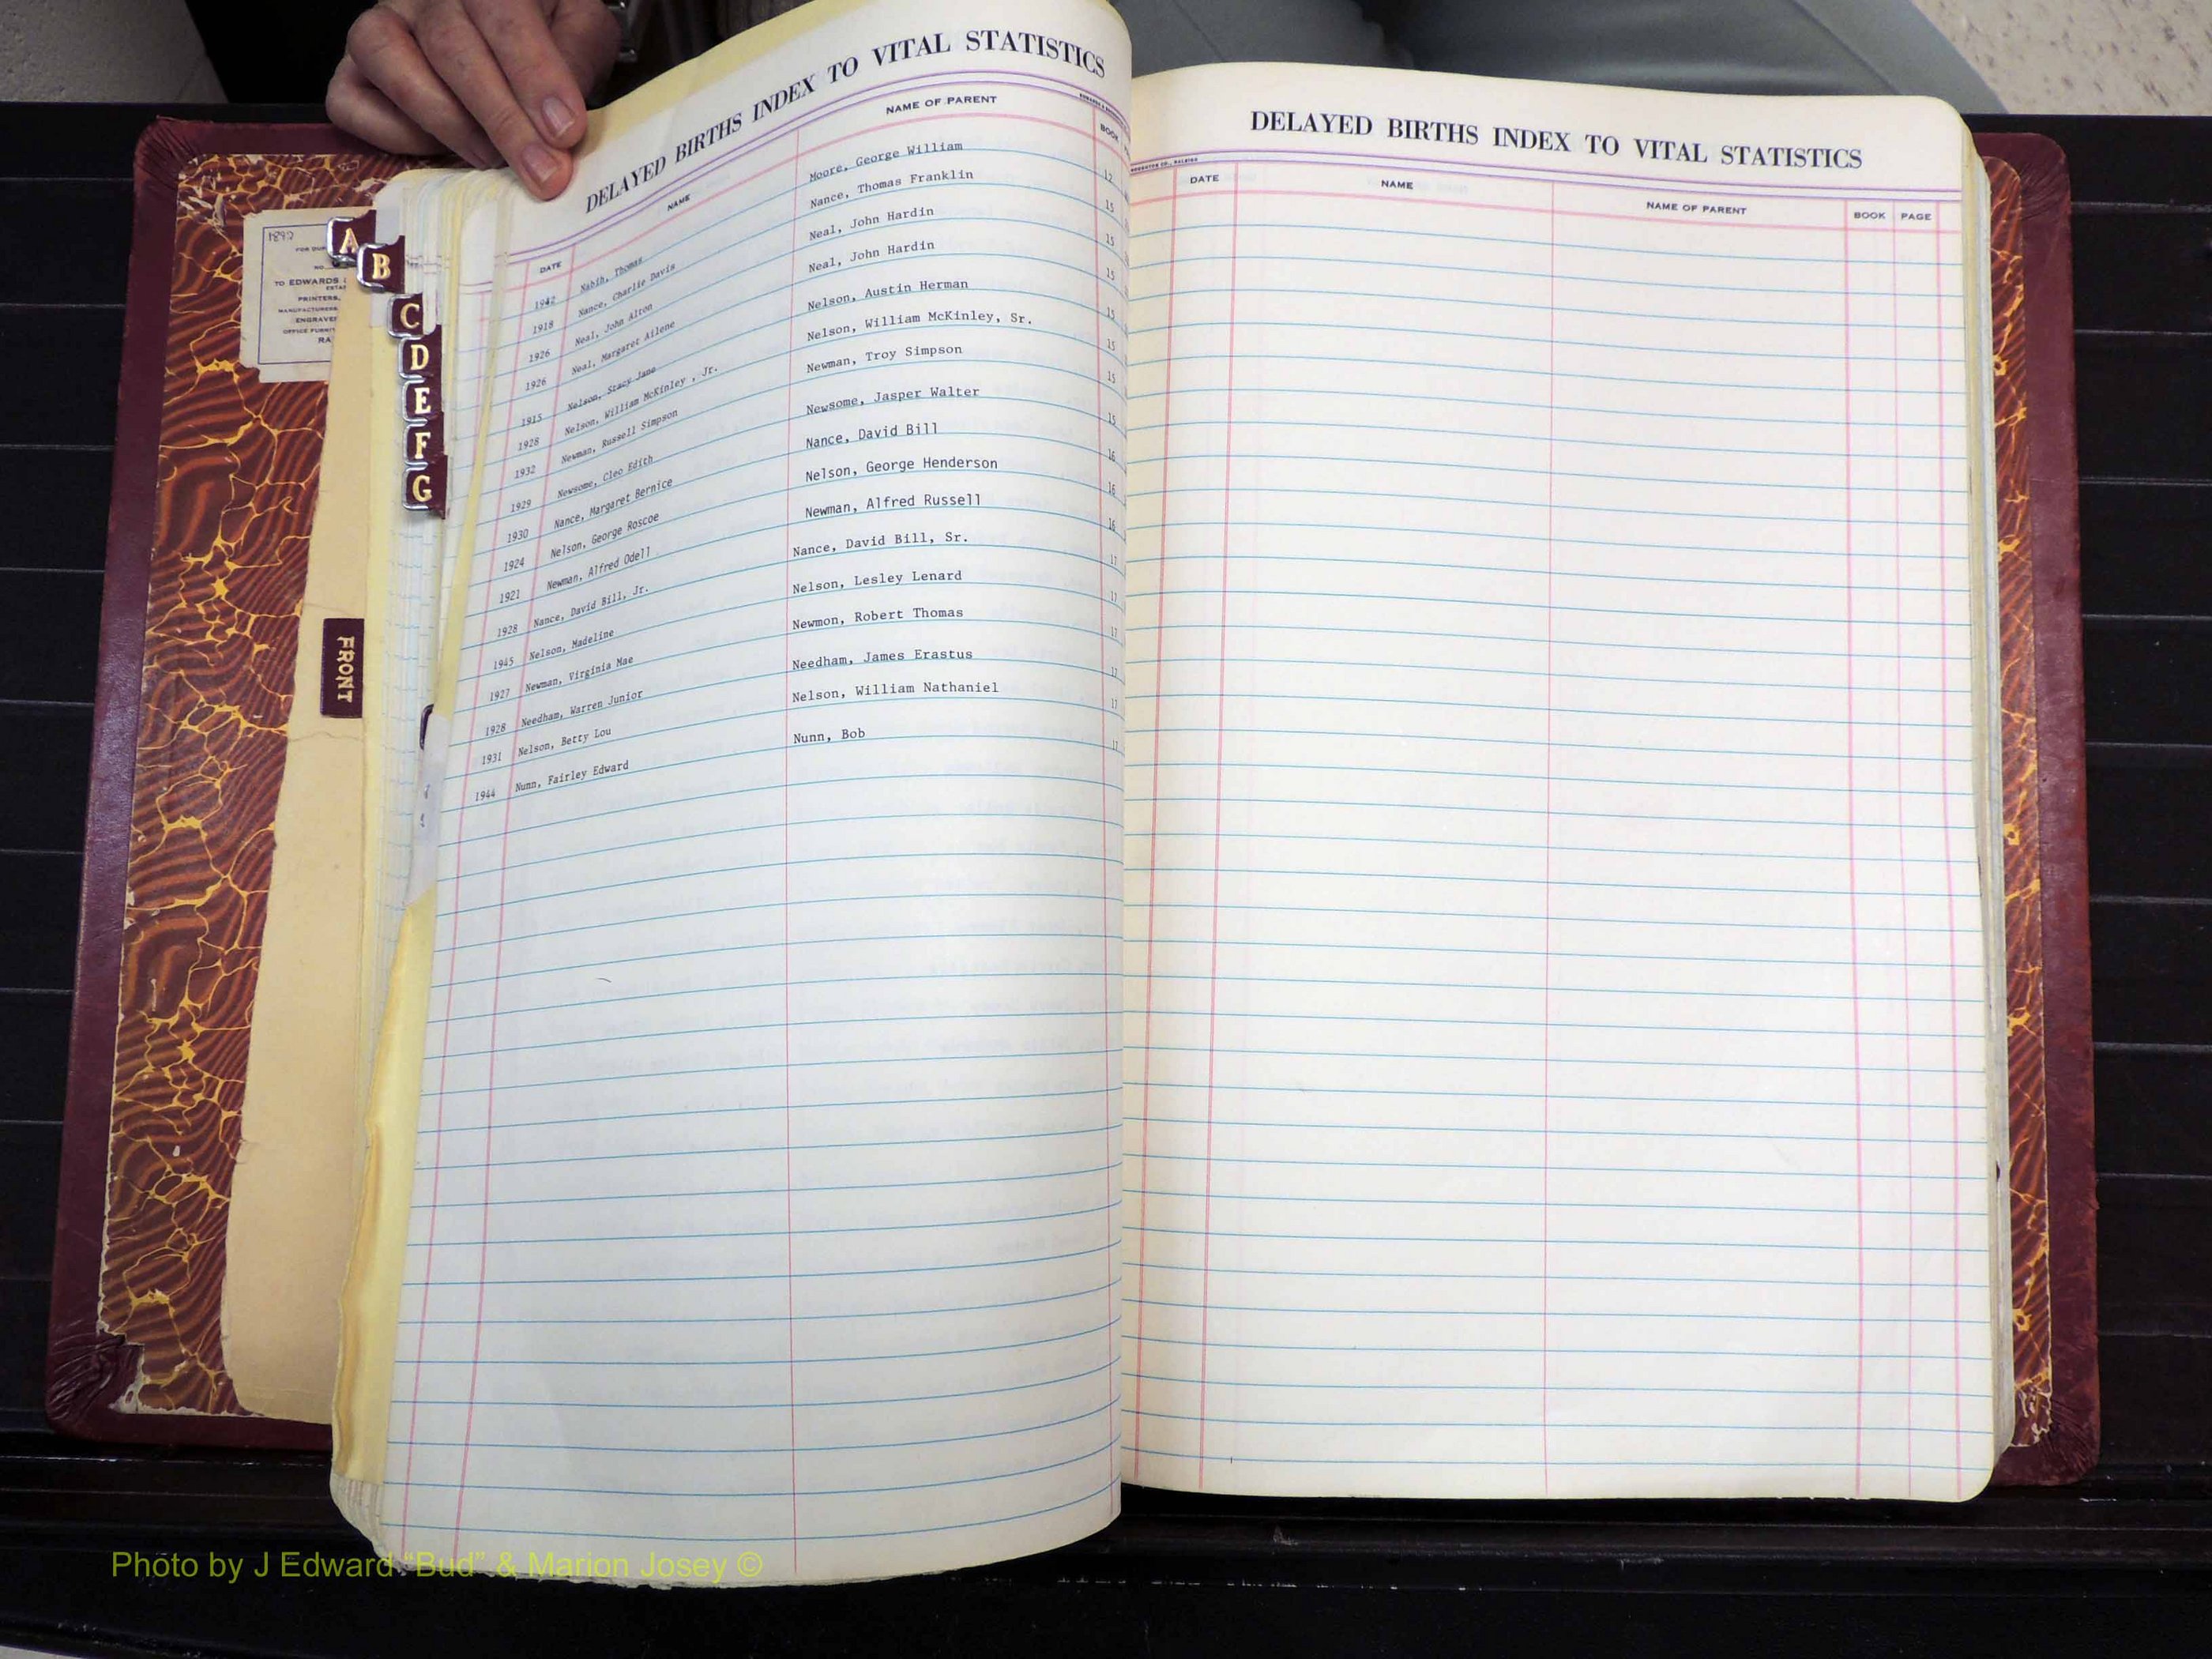 DELAYED BIRTHS INDEX TO VITAL STATISTICS
DATE NAME NAME OF PARENT BOOK
1942 Nabih, Thomas Moore, George William 12
1918 Nance, Charlie Davis Nance, Thomas Franklin 15
1926 Neal, John Alton Neal, John Hardin 15
1926 Neal, Margaret Ailene Neal, John Hardin 15
1915 Nelson, Stacy Jane Nelson, Austin Herman 15
1928 Nelson, William McKinley , Jr. Nelson, William McKinley, Sr. 15
1932 Newman, Russell Simpson Newman, Troy Simpson 15
1929 Newsome, Cleo Edith Newsome, Jasper Walter 15
1930 Nance, Margaret Bernice Nance, David Bill 16
1924 Nelson, George Roscoe Nelson, George Henderson 16
1921 Newman, Alfred Odell Newman, Alfred Russell 16
1928 Nance, David Bill, Jr. Nance, David Bill, Sr. 17
1945 Nelson, Madeline Nelson, Lesley Lenard 17
1927 Newman, Virginia Mae Newmon, Robert Thomas 17
1928 Needham, Warren Junior Needham, James Erastus 17
1931 Nelson, Betty Lou Nelson, William Nathaniel 17
1944 Nunn, Fairley Edward Nunn, Bob 17
DELAYED BIRTHS INDEX TO VITAL STATISTICS
DATE NAME NAME OF PARENT BOOK PAGE
A
B
C
D
E
F
G
FRONT
FOR DUP
NO.
TO EDWARDS
ESTA
PRINTERS,
MANUFACTURERS
ENGRAVE
OFFICE FURNIT
RA
Photo by J Edward “Bud” & Marion Josey ©